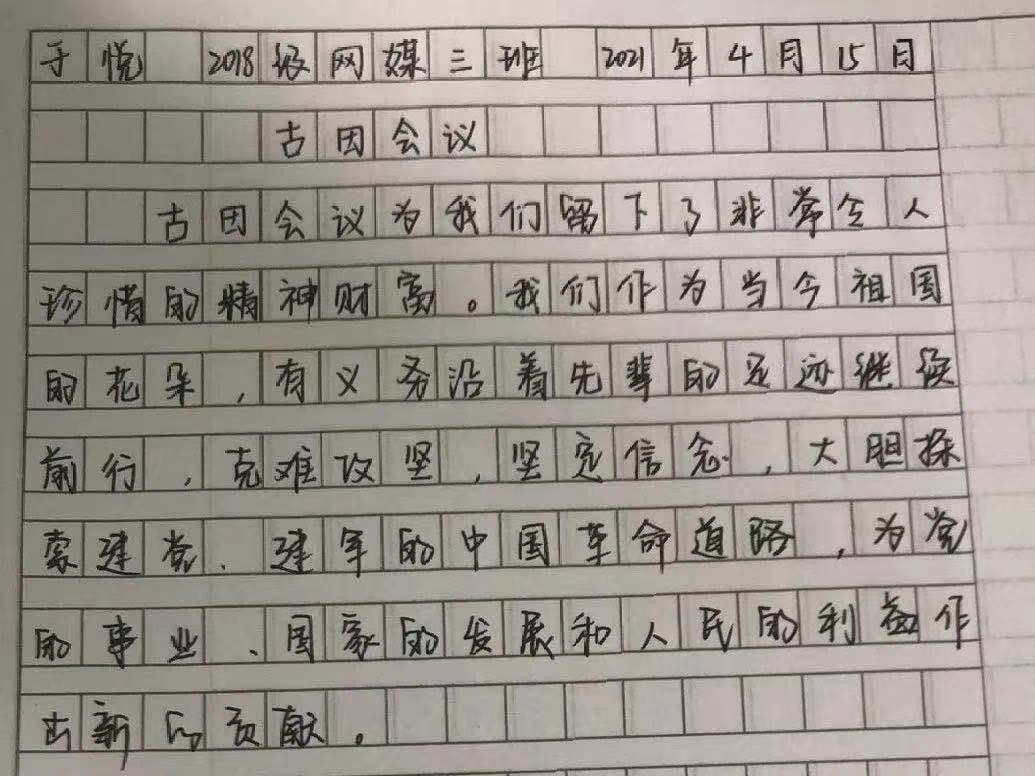 于悦 2018级网媒三班 2021年4月15日
古田会议
古田会议为我们留下了非常令人
珍惜的精神财富。我们作为当今祖国
的花朵，有义务沿着先辈的足迹继续
前行，克难攻坚，坚定信念，大胆探
索建党、建军的中国革命道路，为党
的事业、国家的发展和人民的利益作
出新的贡献。